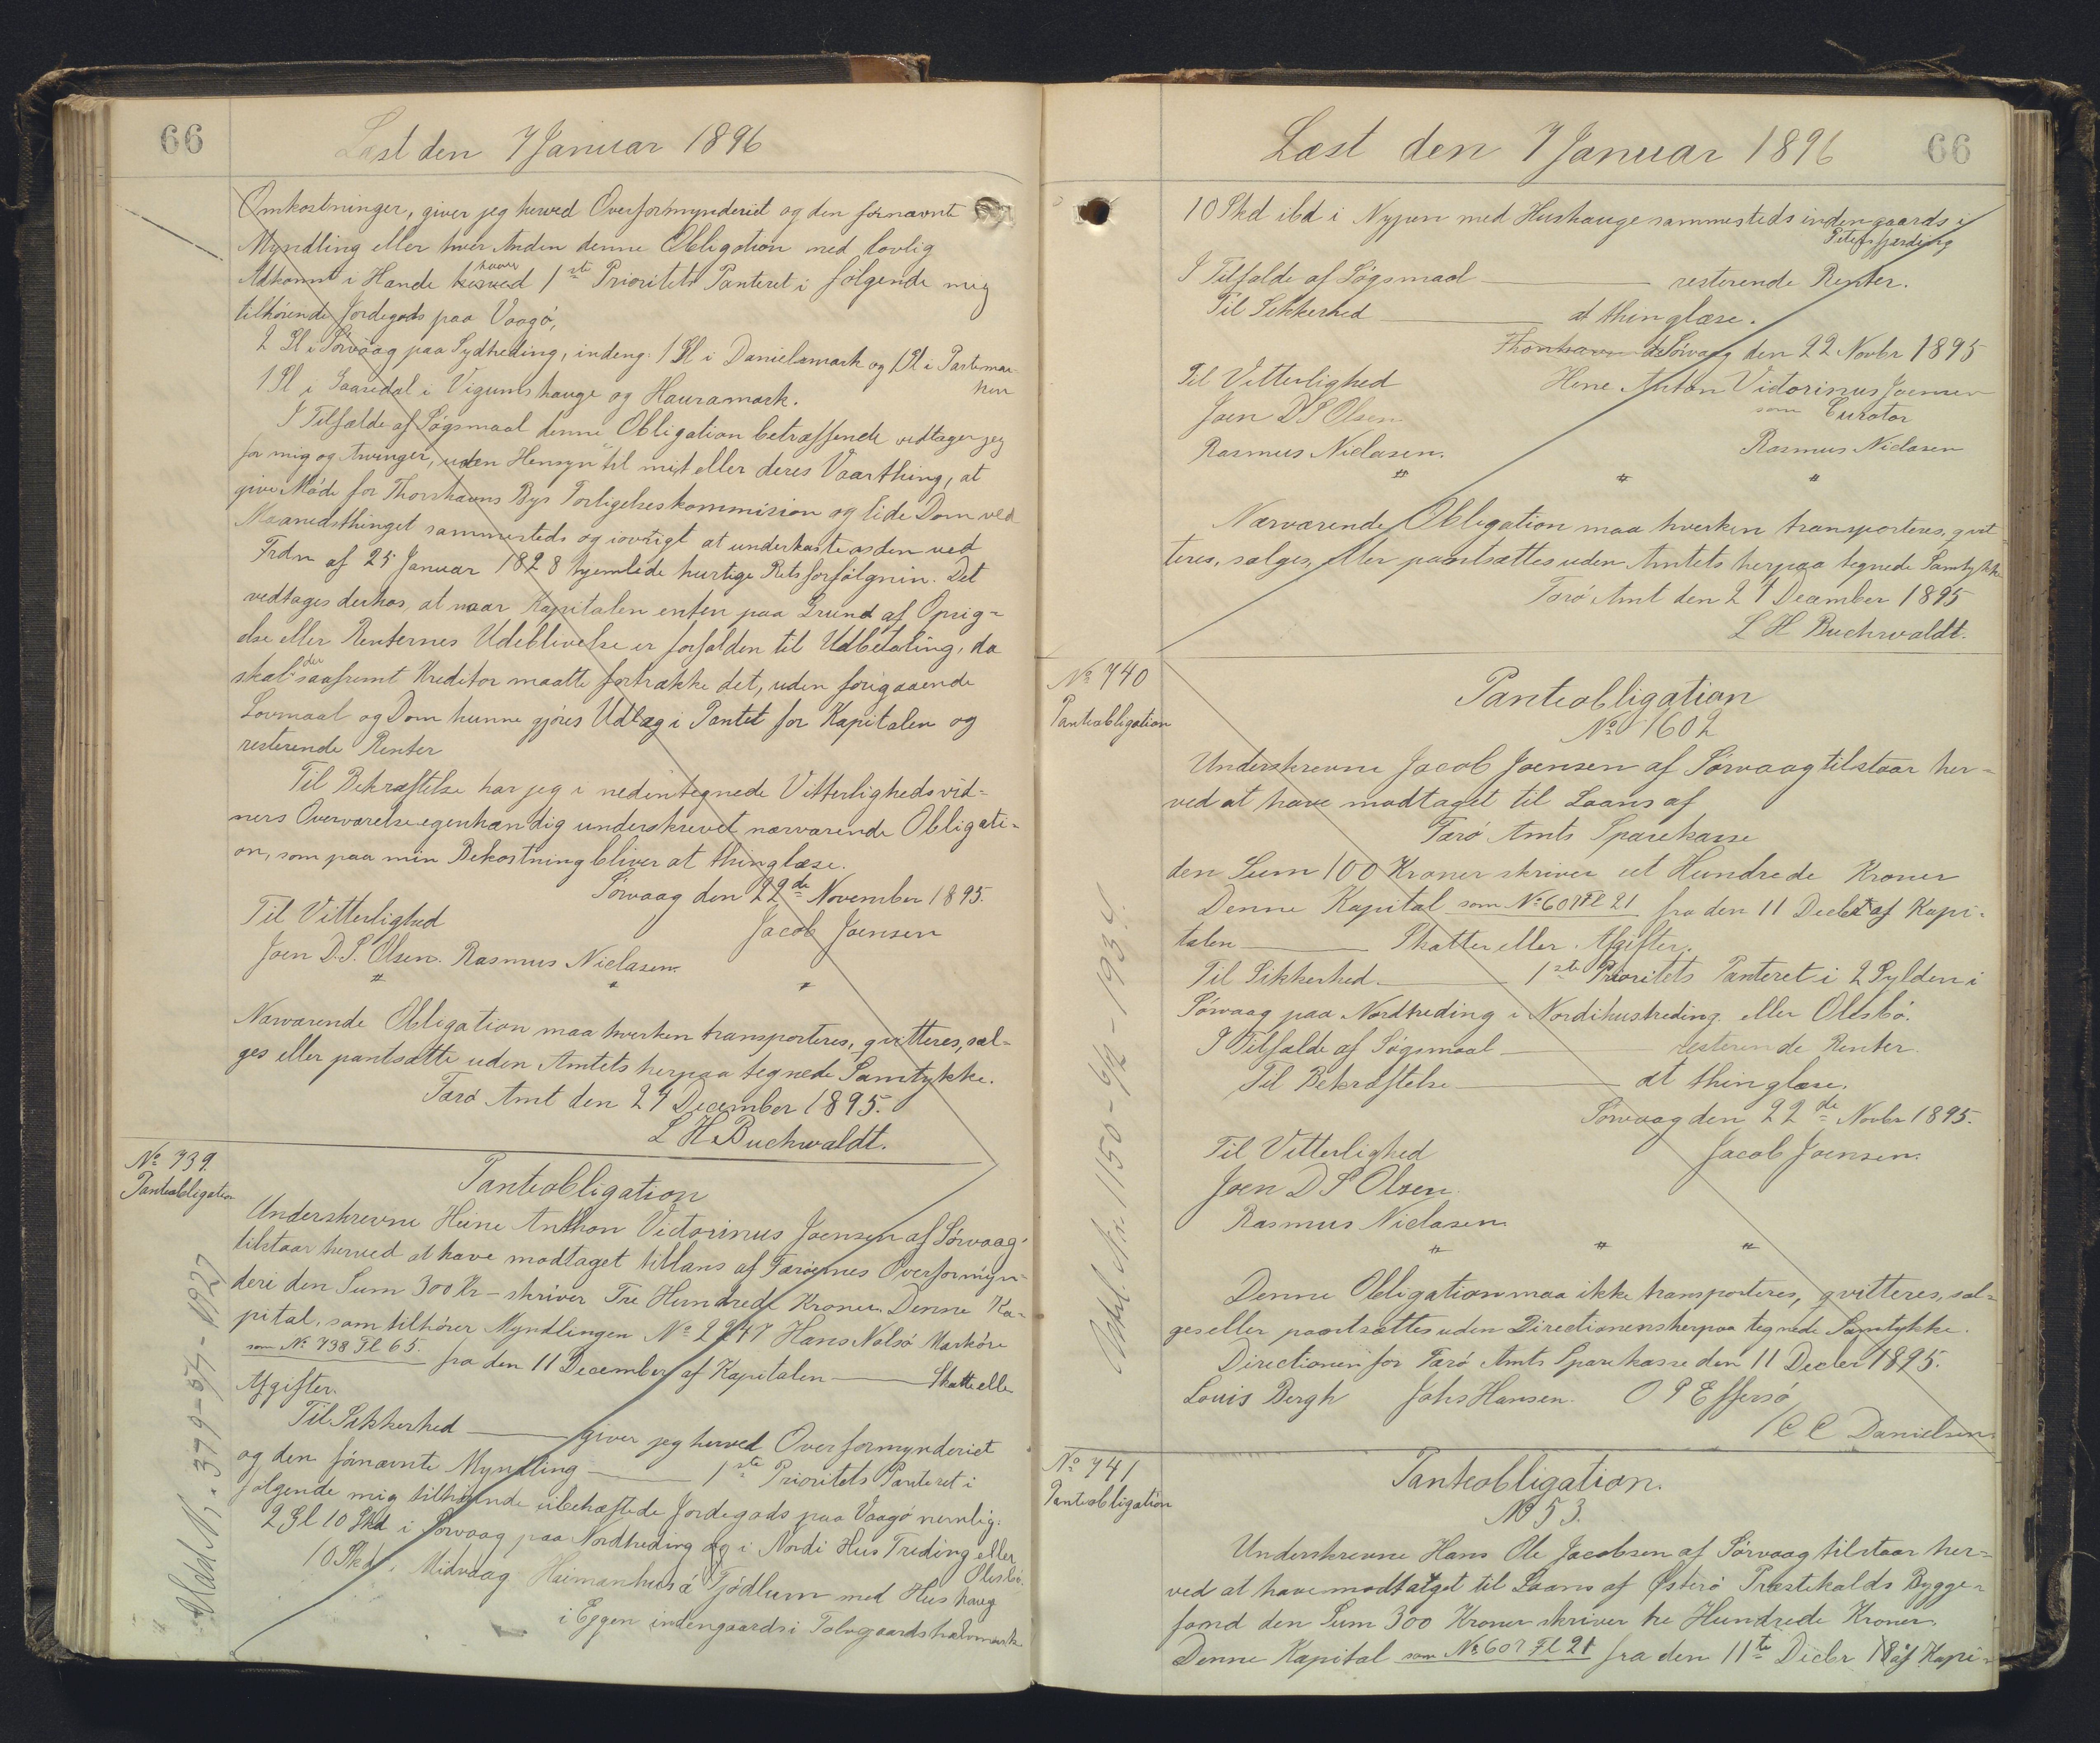 66
Læst den 7 Januar 1896
Omkostninger, giver jeg herved Overformynderiet og den fornævnte
Myndling eller hver Anden denne Obligation med lovlig
Adkomst i Hænde haver 1ste Prioritets Panteret i følgende mig
tilhørende Jordegods paa Vaagø,
2 Gl i Sørvaag paa Sydtreding, indeng: 1 Gl i Danielsmark og 1 Gl i Partsmar
ken
1 Gl i Gaasedal i Vigumshauge og Hauramark.
I Tilfælde af Søgsmaal denne Obligation betræffende vedtager jeg
for mig og Arvinger, uden Hensyn til mit eller deres Vaarthing, at
give Møde for Thorshavns Byes Forligelseskommision og lide Dom ved
Maanedsthinget sammesteds og iøvrigt at underkaste os den ved
Frdn af 25 Januar 1828 hjemlede hurtige Retsforfølgnin. Det
vedtages derhos, at naar Kapitalen enten paa Grund af Opsig=
else eller Renternes Udeblivelse er forfalden til Udbetaling, da
skal der saafremt Kreditor maatte fortrække det, uden forigaaende
Lovmaal og Dom kunne gjøres Udlæg i Pantet for Kapitalen og
resterende Renter
Til Bekræftelse har jeg i nedentegnede Vitterlighedsvid=
ners Overværelse egenhændig underskrevet nærværende Obligati=
on, som paa min Bekostning bliver at thinglæse.
Sørvaag den 22de November 1895.
Til Vitterlighed
Jacob Joensen
Joen D. P. Olsen. Rasmus Niclasen.
Nærværende Obligation maa hverken transporteres, qvitteres, sæl=
ges eller pantsætte uden Amtets herpaa tegnede Samtykke.
Færø Amt den 27 December 1895.
L H Buchwaldt.
No 739.
Panteobligation
Panteobligation
Underskrevne Heine Anthon Victorinus Joensen af Sørvaag
tilstaar herved at have modtaget tillans af Færøernes Overformyn=
deri den Sum 300 Kr - skriver Tre Hundrede Kroner. Denne Ka=
pital, som tilhører Myndlingen No 2247 Hans Nolsø
som No 738 Fl 65. fra den 11 December af Kapitalen — Skatte eller
Afgifter.
Til Sikkerhed — giver jeg herved Overformynderiet
og den fornævnte Myndling — 1ste Prioritets Panteret i
følgende mig tilhørende ubehæftede Jordegods paa Vaagø nemlig:
2 Gl 10 Skd i Sørvaag paa Nordtreding og i Nordi Hus Treding eller
Olesbø.
10 Skd i Midvaag Heimanhus á Tjødlum med Hus haug
i Eggen indengaards i Tolvgaardshalvmark
66
Læst den 7 Januar 1896
10 Skd ibd i Nyjpun med Hushauge sammesteds indengaards i
I Tilfælde af Søgsmaal — resterende Renter.
Til Sikkerhed — at thinglæse.
Sørvaag den 22 Novbr 1895
Til Vitterlighed
Hene Anton Victorinus Joensen
som Curator
Joen D P Olsen
Rasmus Niclasen.
Rasmus Niclasen
Nærværende Obligation maa hverken transporteres, qvit
teres, sælges, eller pantsættes uden Amtets herpaa tegnede Samtykke
Færø Amt den 27 December 1895
L H Buchwaldt.
No 740
Panteobligation
Panteobligation
No 1602
Underskrevne Jacob Joensen af Sørvaag tilstaar her=
ved at have modtaget til Laans af
Færø Amts Sparekasse
den Sum 100 Kroner skriver et Hundrede Kroner
Denne Kapital som No 607 Fl 21 fra den 11 Decbr af Kapi=
talen — Skatter eller Afgifter.
Til Sikkerhed — 1ste Prioritets Panteret i 2 Gylden i
Sørvaag paa Nordtreding i Nordihustreding eller Olesbø.
I Tilfælde af Søgsmaal — resterende Renter.
Til Bekræftelse — at thinglæse.
Sørvaag den 22de Novbr 1895.
Til Vitterlighed
Jacob Joensen.
Joen D P Olsen
Rasmus Niclasen
Denne Obligation maa ikke transporteres, qvitteres, sæl=
ges eller pantsættes uden Directionens herpaa tegnede Samtykke.
Directionen for Færø Amts Sparekasse den 11 Decber 1895.
Louis Bergh Johs Hansen. O P Effersø
/ C C Danielsen
No 741
Panteobligation
Panteobligation.
No 53.
Underskrevne Hans Ole Jacobsen af Sørvaag tilstaar her=
ved at have modtaget til Laans af Østerø Præstekalds Bygge=
fond den Sum 300 Kroner skriver tre Hundrede Kroner.
Denne Kapital som No 607 Fl 21 fra den 11te Decbr af Kapi=